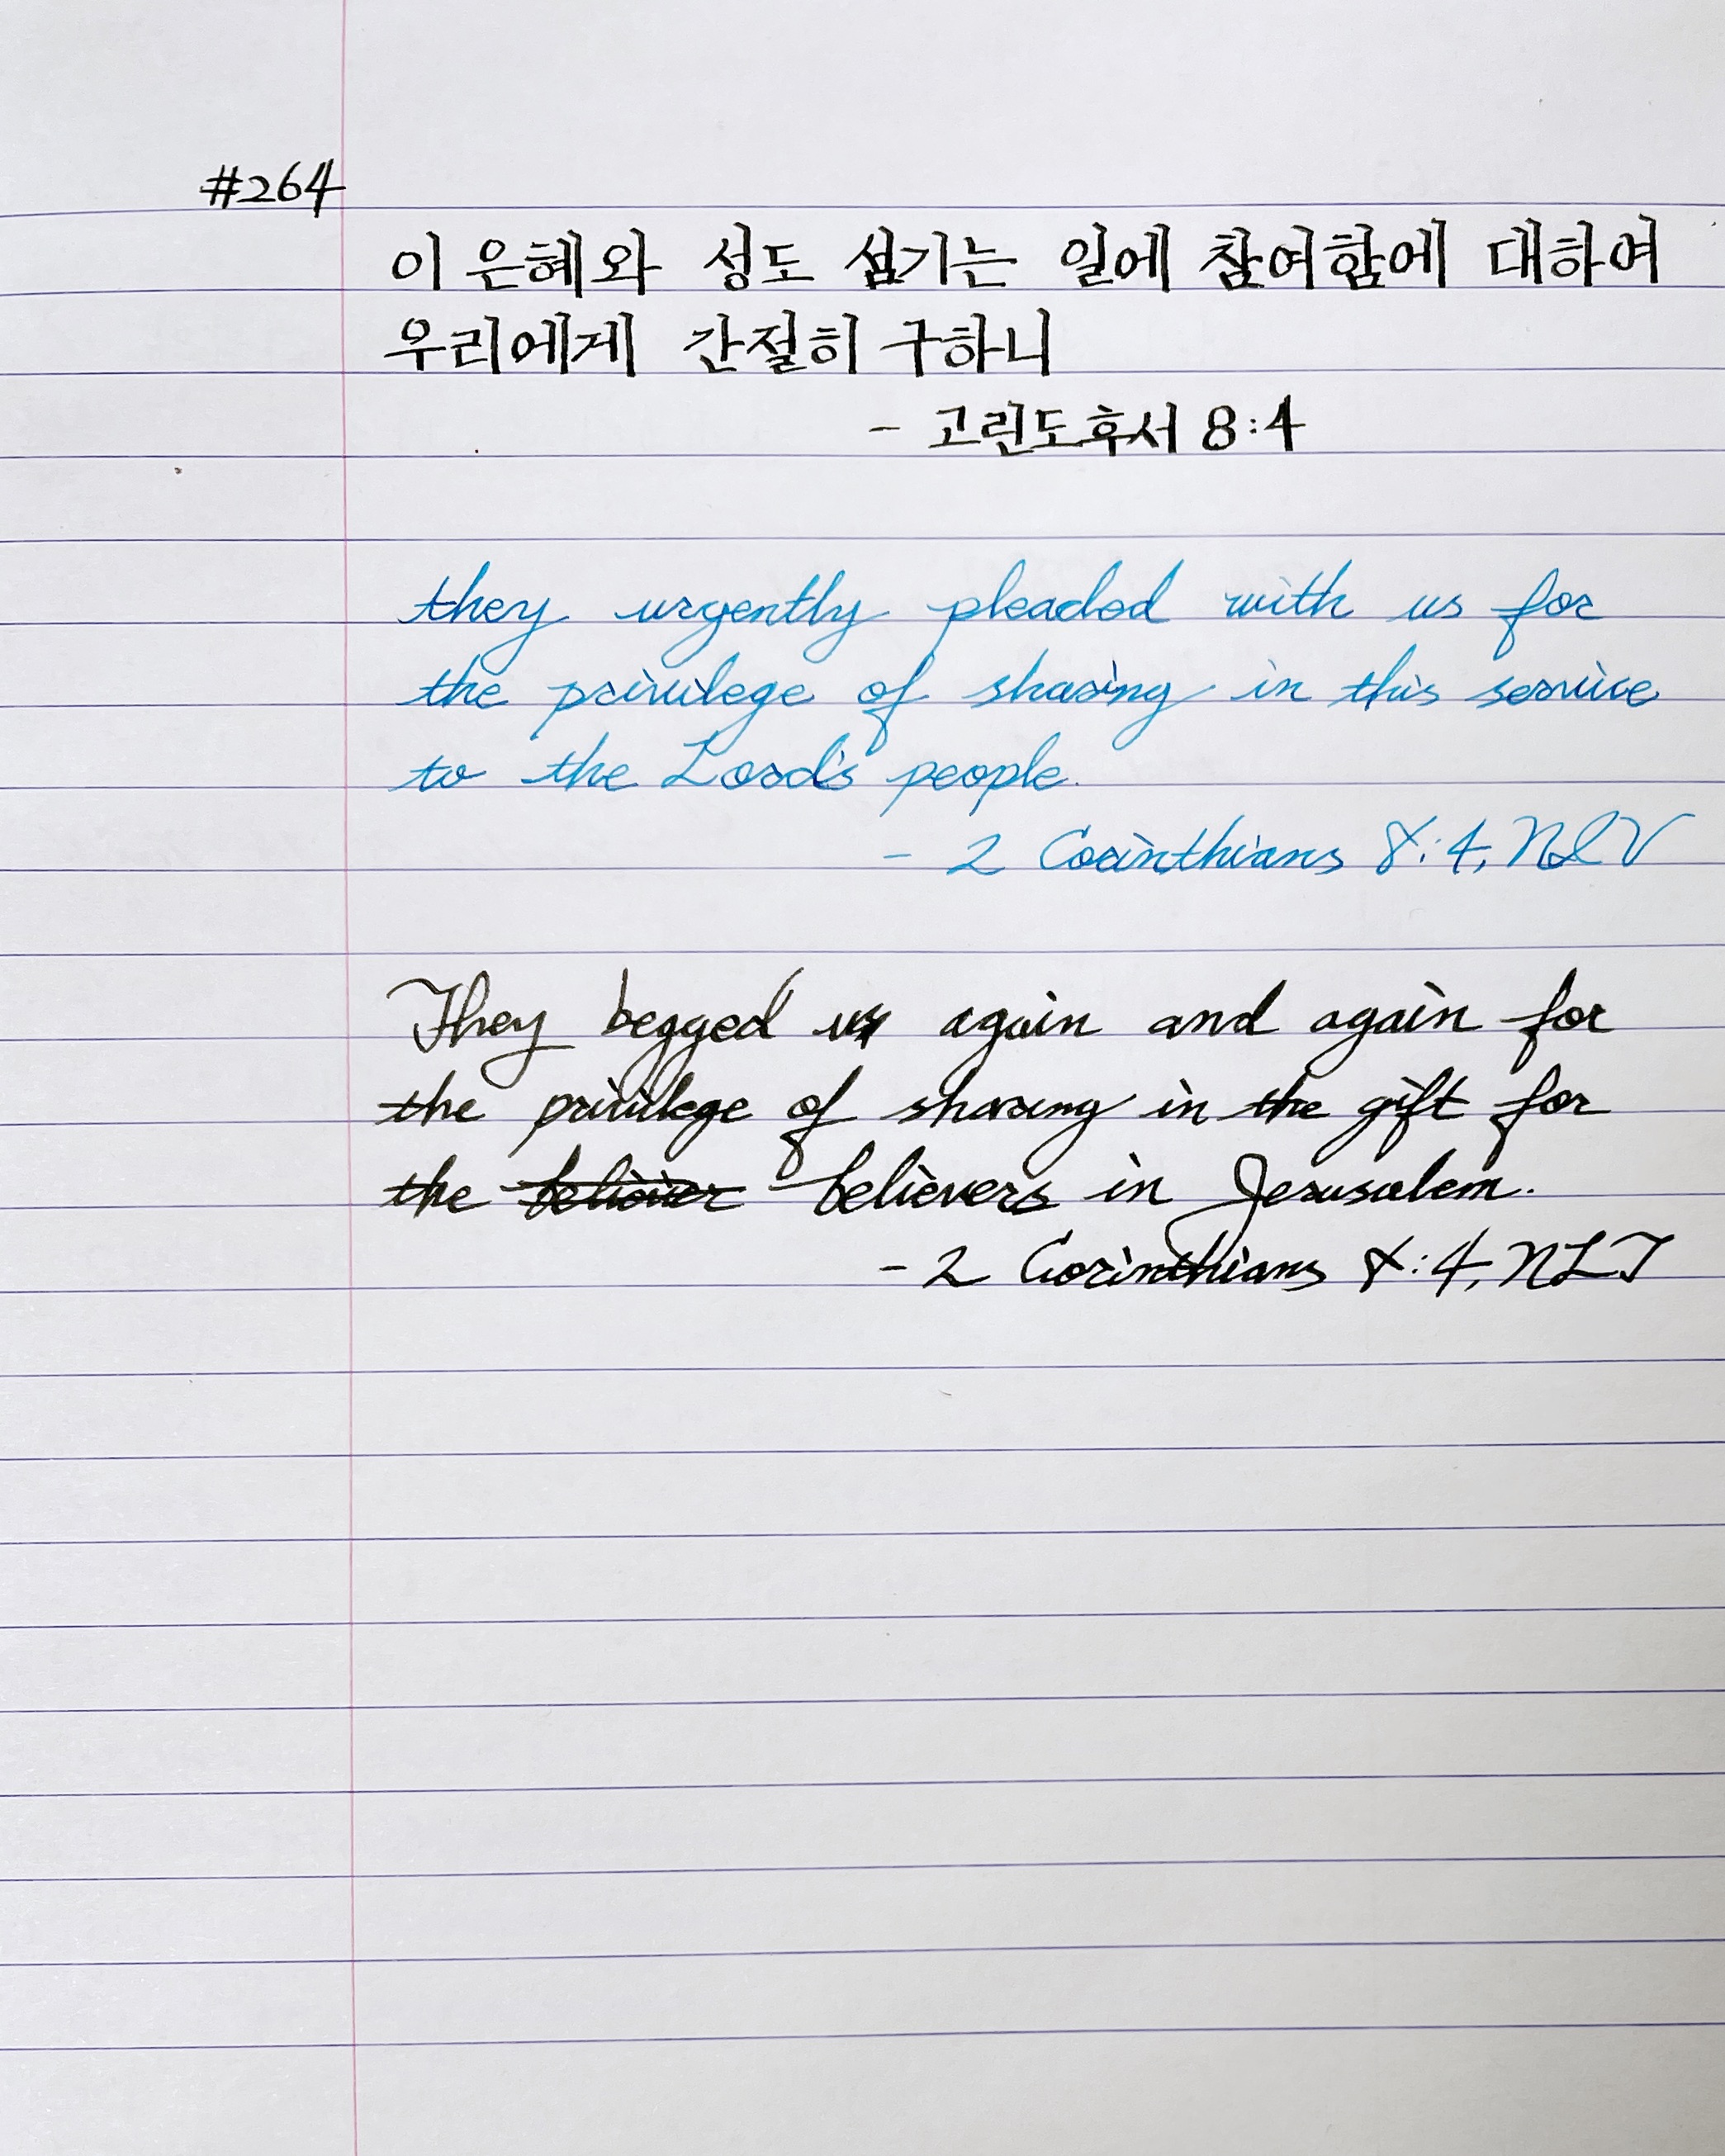 #264
이 은혜와 성도 섬기는 일에 참여함에 대하여
우리에게 간절히 구하니
- 고린도후서 8:4
they urgently pleaded with us for
the privilege of sharing in this service
to the Lord's people.
- 2 Corinthians 8:4, NIV
They begged us again and again for
the privilege of sharing in the gift for
the believer believers in Jerusalem.
- 2 Corinthians 8:4, NLT